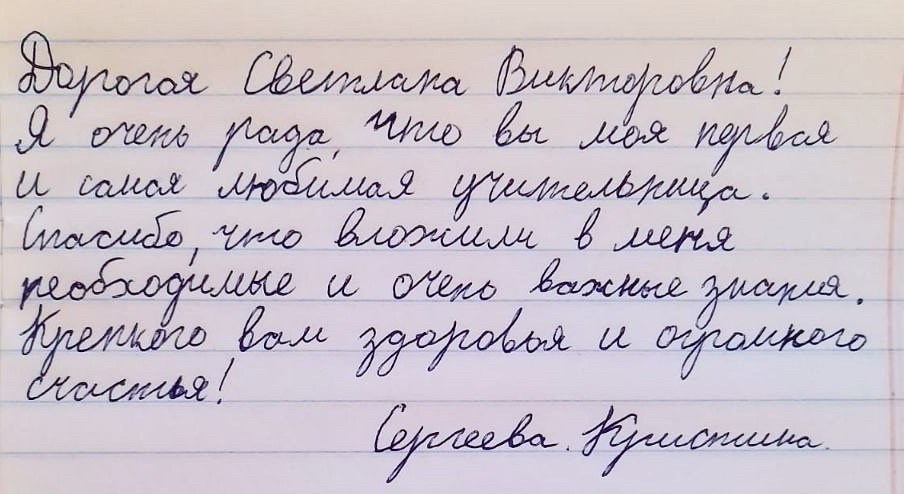 Дорогая Светлана Викторовна!
Я очень рада, что вы моя первая
и самая любимая учительница.
Спасибо, что вложили в меня
необходимые и очень важные знания.
Крепкого вам здоровья и огромного
счастья!
Сергеева. Кристина.